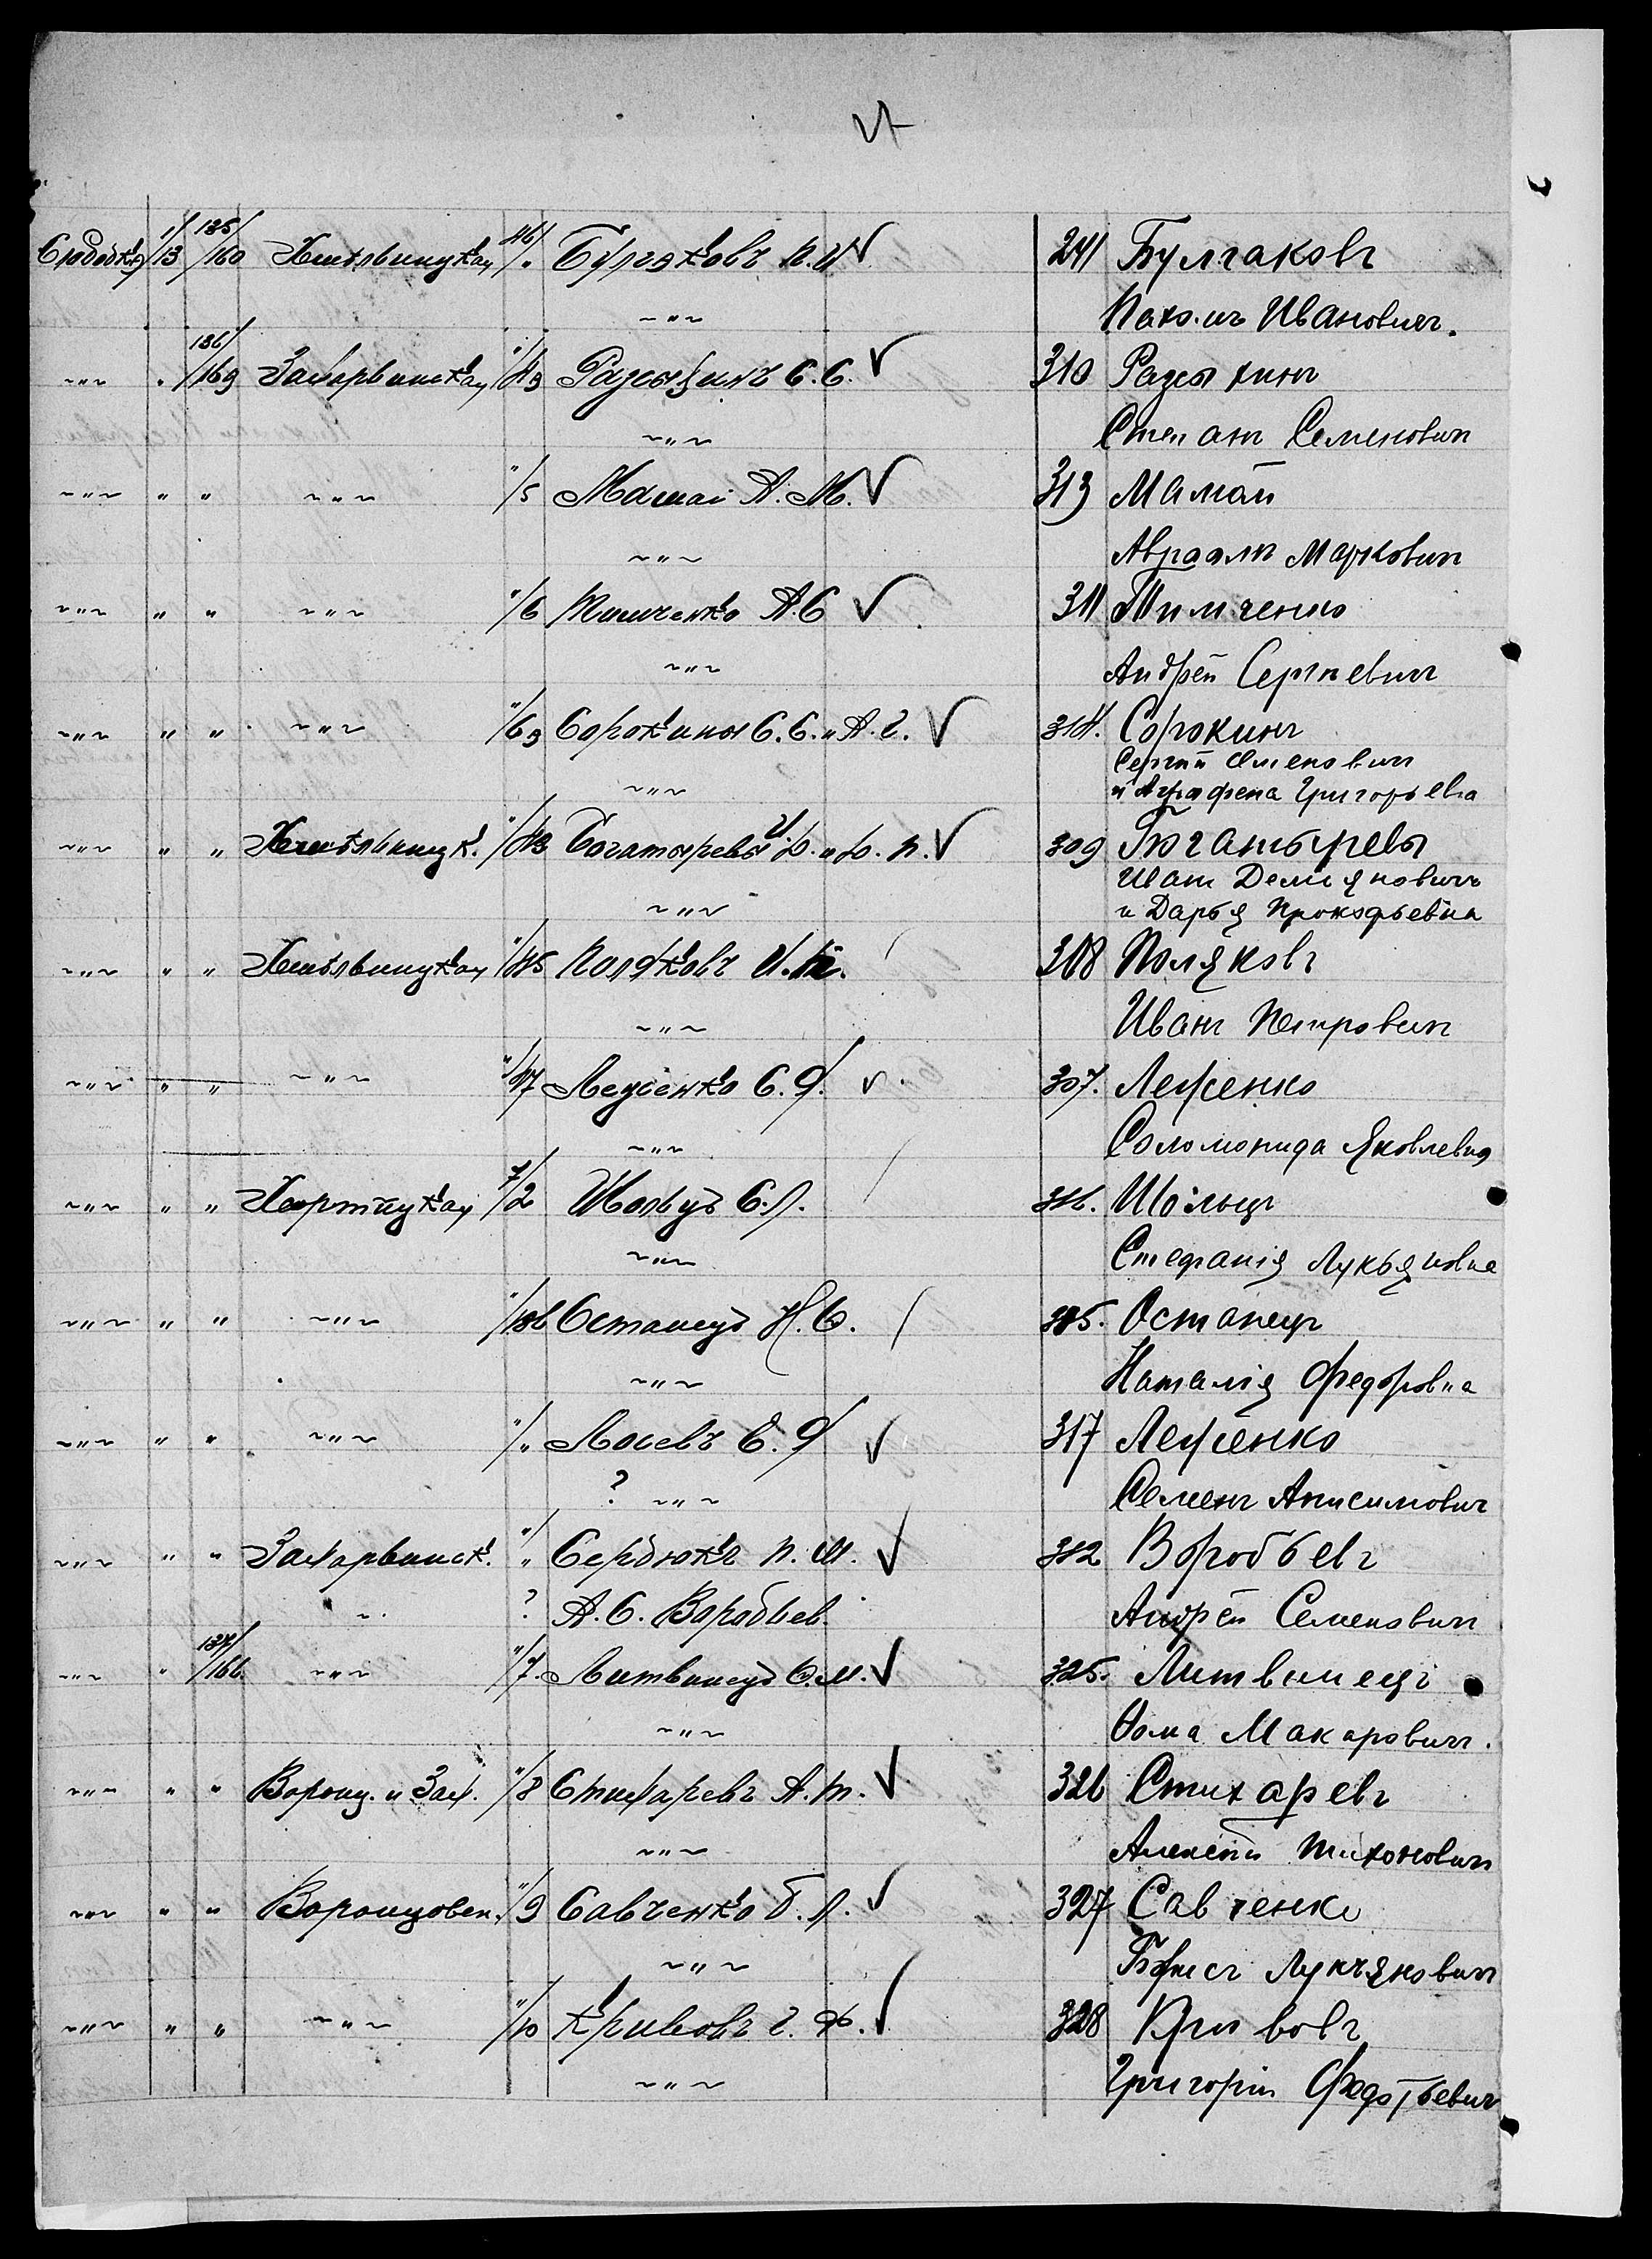 Слободская 1/13 135/160 Хмѣльницкая 46/" Булгаковъ П.И. 241 Булгаковъ
~"~ Пахомъ Ивановичъ.
~"~ " 136/169 Захарьинская "/43 Разсыхинъ С.С. 310 Разсыхинъ
~"~ Степанъ Семеновичъ
~"~ " " ~"~ "/5 Мамай А.М. 313 Мамай
~"~ Авраамъ Марковичъ
~"~ " " ~"~ "/6 Тимченко А.С 311 Тимченко
~"~ Андрей Сергѣевичъ
~"~ " " ~"~ "/63 Сорокины С.С. и А.Г. 314. Сорокинъ
Сергѣй Семеновичъ
~"~ и Аграфена Григорьевна
~"~ " " Хмѣльницк. "/43 Богатыревы И.Д. и Д.П. 309 Богатыревы
Иванъ Демьяновичъ
~"~ и Дарья Прокофьевна
~"~ " " Хмѣльницкая "/45 Поляковъ И.П. 308 Поляковъ
~"~ Иванъ Петровичъ
~"~ " " ~"~ "/47 Леженко С.Я. 307. Леженко
~"~ Соломонида Яковлевна
~"~ " " Хортицкая 7/2 Шольцъ С.Л. 316. Шольцъ
~"~ Стефанія Лукьяновна
~"~ " " ~"~ Останецъ Н.Ѳ. 315. Останецъ
~"~ Наталія Федоровна
~"~ " " ~"~ "/" Лосевъ Е.Я 317 Леженко
? ~"~ Семенъ Анисимовичъ
~"~ " " Захарьинск. "/" Сердюкъ П.М. 312 Воробьевъ
~"~ ? А.С. Воробьев. Андрей Семеновичъ
~"~ " 137/166. ~"~ "/7. Литвинецъ Ѳ.М. 325. Литвинецъ
~"~ Ѳома Макаровичъ.
~"~ " " Воронц. и Зах. "/8 Стихаревъ А.Т. 326 Стихаревъ
~"~ Алексѣй Тихоновичъ
~"~ " " Воронцовск. "/9 Савченко Б.Л. 327 Савченко
~"~ Борисъ Лукьяновичъ
~"~ " " ~"~ "/10 Кривовъ Г.Ф. 328 Кривовъ
~"~ Григорій Федотьевичъ